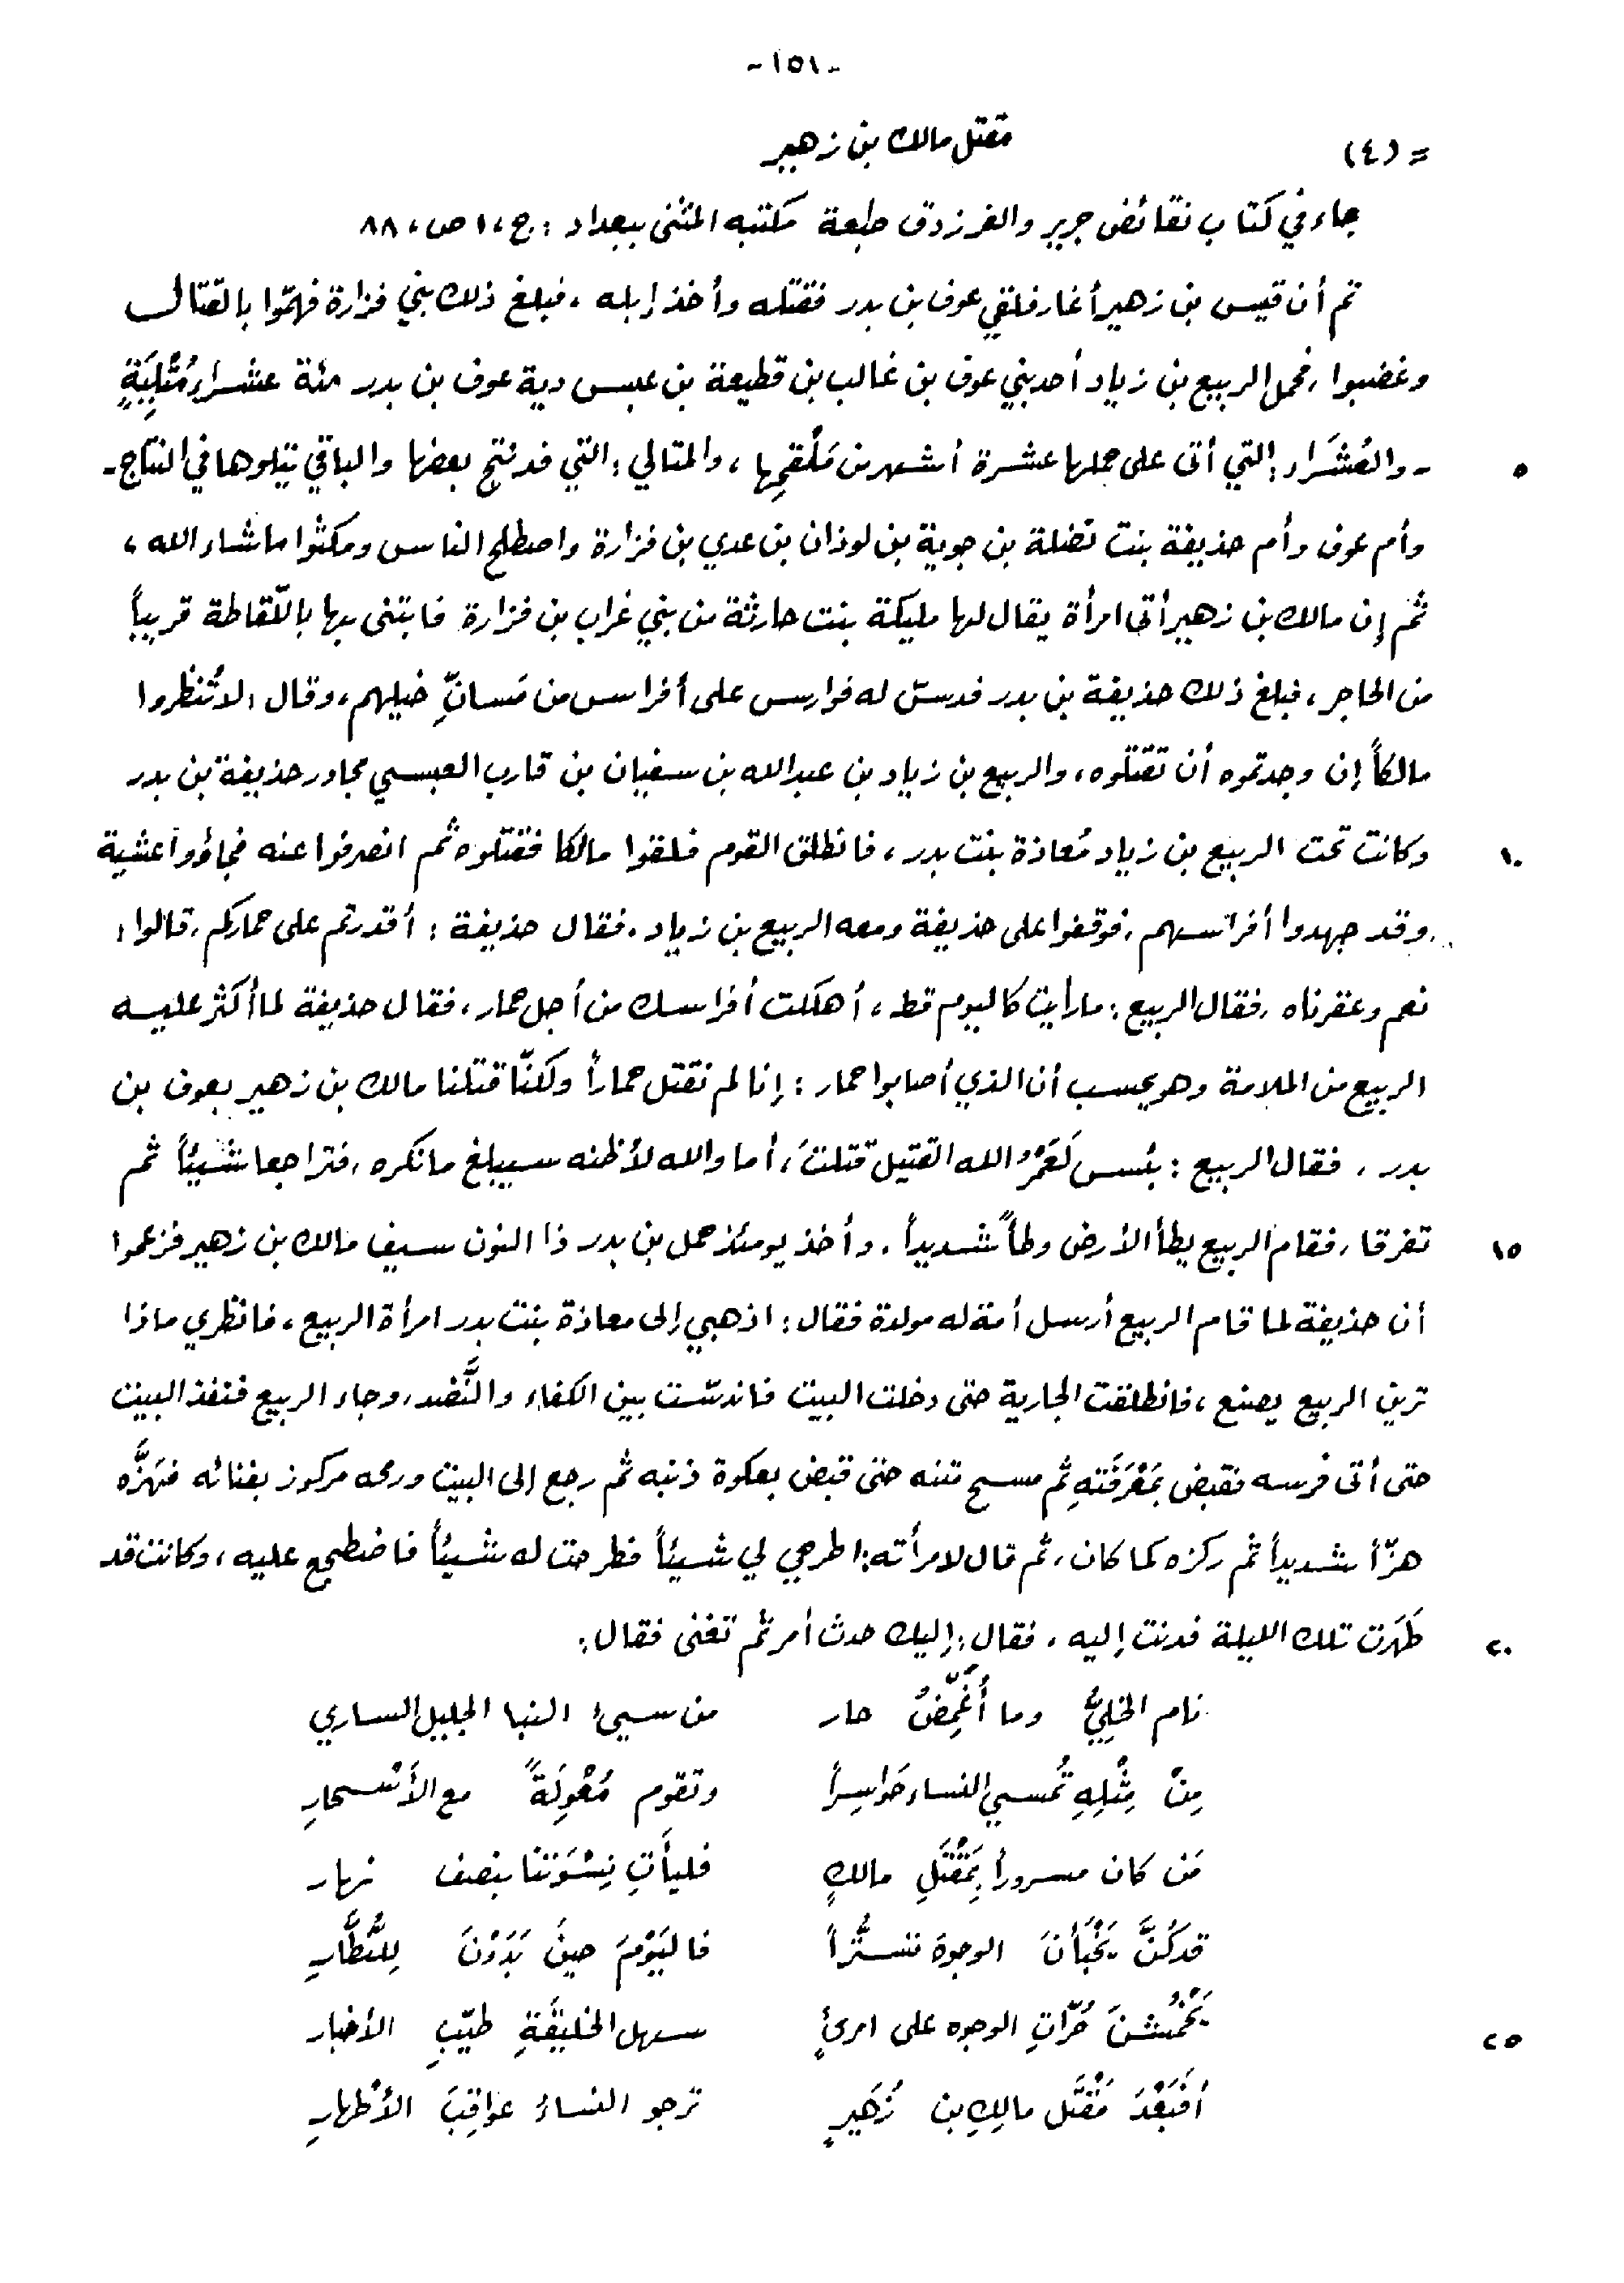 -١٥١-
= (٤) مقتل مالك بن زهير
جاء في كتاب نقائض جرير والفرزدق طبعة مكتبه المثنى ببغداد : ج،١ ص، ٨٨
ثم أن قيس بن زهير أغار فلقي عوف بن بدر فقتله وأخذ إبله ، فبلغ ذلك بني فزارة فهمّوا بالقتال
وغضبوا ، فحمل الربيع بن زياد أحد بني عوف بن غالب بن قطيعة بن عبس دية عوف بن بدر مئة عشراءٍ مُتْلِيَةٍ
٥ - والعُشَراء : التي أتى على حملها عشرة أشهر من مَلْقَحِها ، والمتالي : التي قد نتج بعضها والباقي يتلوها في النتاج -
وأم عوف وأم حذيفة بنت نضلة بن جوية بن لوذان بن عدي بن فزارة واصطلح الناس ومكثوا ما شاء الله ،
ثم إن مالك بن زهير أتى امرأة يقال لها مليكة بنت حارثة من بني غراب بن فزارة فابتنى بها باللّقاطة قريباً
من الحاجر ، فبلغ ذلك حذيفة بن بدر فدسّ له فوارس على أفراس من مَسانِّ خيلهم ، وقال : لاتُنظروا
مالكاً إن وجدتموه أن تقتلوه ، والربيع بن زياد بن عبدالله بن سفيان بن قارب العبسي مجاور حذيفة بن بدر
١٠ وكانت تحت الربيع بن زياد مُعاذة بنت بدر ، فانطلق القوم فلقوا مالكا فقتلوه ثم انصرفوا عنه فجاؤوا عشية
وقد جهدوا أفراسهم ، فوقفوا على حذيفة ومعه الربيع بن زياد . فقال حذيفة : أقدرتم على حماركم ، قالوا :
نعم وعقرناه ، فقال الربيع : ما رأيت كاليوم قط ، أهلكت أفراسك من أجل حمار ، فقال حذيفة لما أكثر عليه
الربيع من الملامة وهو يحسب أن الذي أصابوا حمار : إنا لم نقتل حماراً ولكنّا قتلنا مالك بن زهير بعوف بن
بدر ، فقال الربيع : بئس لَعَمْرُ الله القتيل قتلتَ ، أما والله لأظنه سيبلغ ما نكره ، فتراجعا شيئاً ثم
١٥ تفرقا ، فقام الربيع يطأ الأرض وطأً شديداً . وأخذ يومئذ حمل بن بدر ذا النون سيف مالك بن زهير فزعموا
أن حذيفة لما قام الربيع أرسل أمة له مولدة فقال : اذهبي إلى معاذة بنت بدر امرأة الربيع ، فانظري ماذا
ترين الربيع يصنع ، فانطلقت الجارية حتى دخلت البيت فاندسّت بين الكفاء والنَّضد ، وجاء الربيع فنفذ البيت
حتى أتى فرسه فقبض بمَعْرَفَتهِ ثم مسح متنه حتى قبض بعكوة ذنبه ثم رجع إلى البيت ورمحه مركوز بفنائه فهَزَّه
هزّاً شديداً ثم ركزه كما كان ، ثم قال لامرأته : اطرحي لي شيئاً فطرحت له شيئاً فاضطجع عليه ، وكانت قد
٢٠ طَهَرَت تلك الليلة فدنت إليه ، فقال : إليك حدث أمر ثم تغنى فقال :
نام الخَلِيُّ وما أُغَمِّضُ حار من سيءِ النبا الجليل الساري
مِنْ مِثْلِهِ تُمسي النساء حَواسِراً وتقوم مُعْوِلَةً مع الأَسْحارِ
مَن كان مسروراً بِمَقْتَلِ مالكٍ فليأتِ نِسْوَتنا بنصف نهار
قد كُنَّ يَخْبَأنَ الوجوهَ تَستُّراً فاليَوْمَ حينَ بَدَوْنَ لِلنُّظَّارِ
٢٥ يَخْمُشْنَ حُرّاتِ الوجوه على امرئٍ سهل الخليقَةِ طيّبِ الأخبار
أفَبَعْدَ مَقْتَل مالِكِ بن زُهَيرٍ ترجو النساءُ عواقِبَ الأَطْهارِ